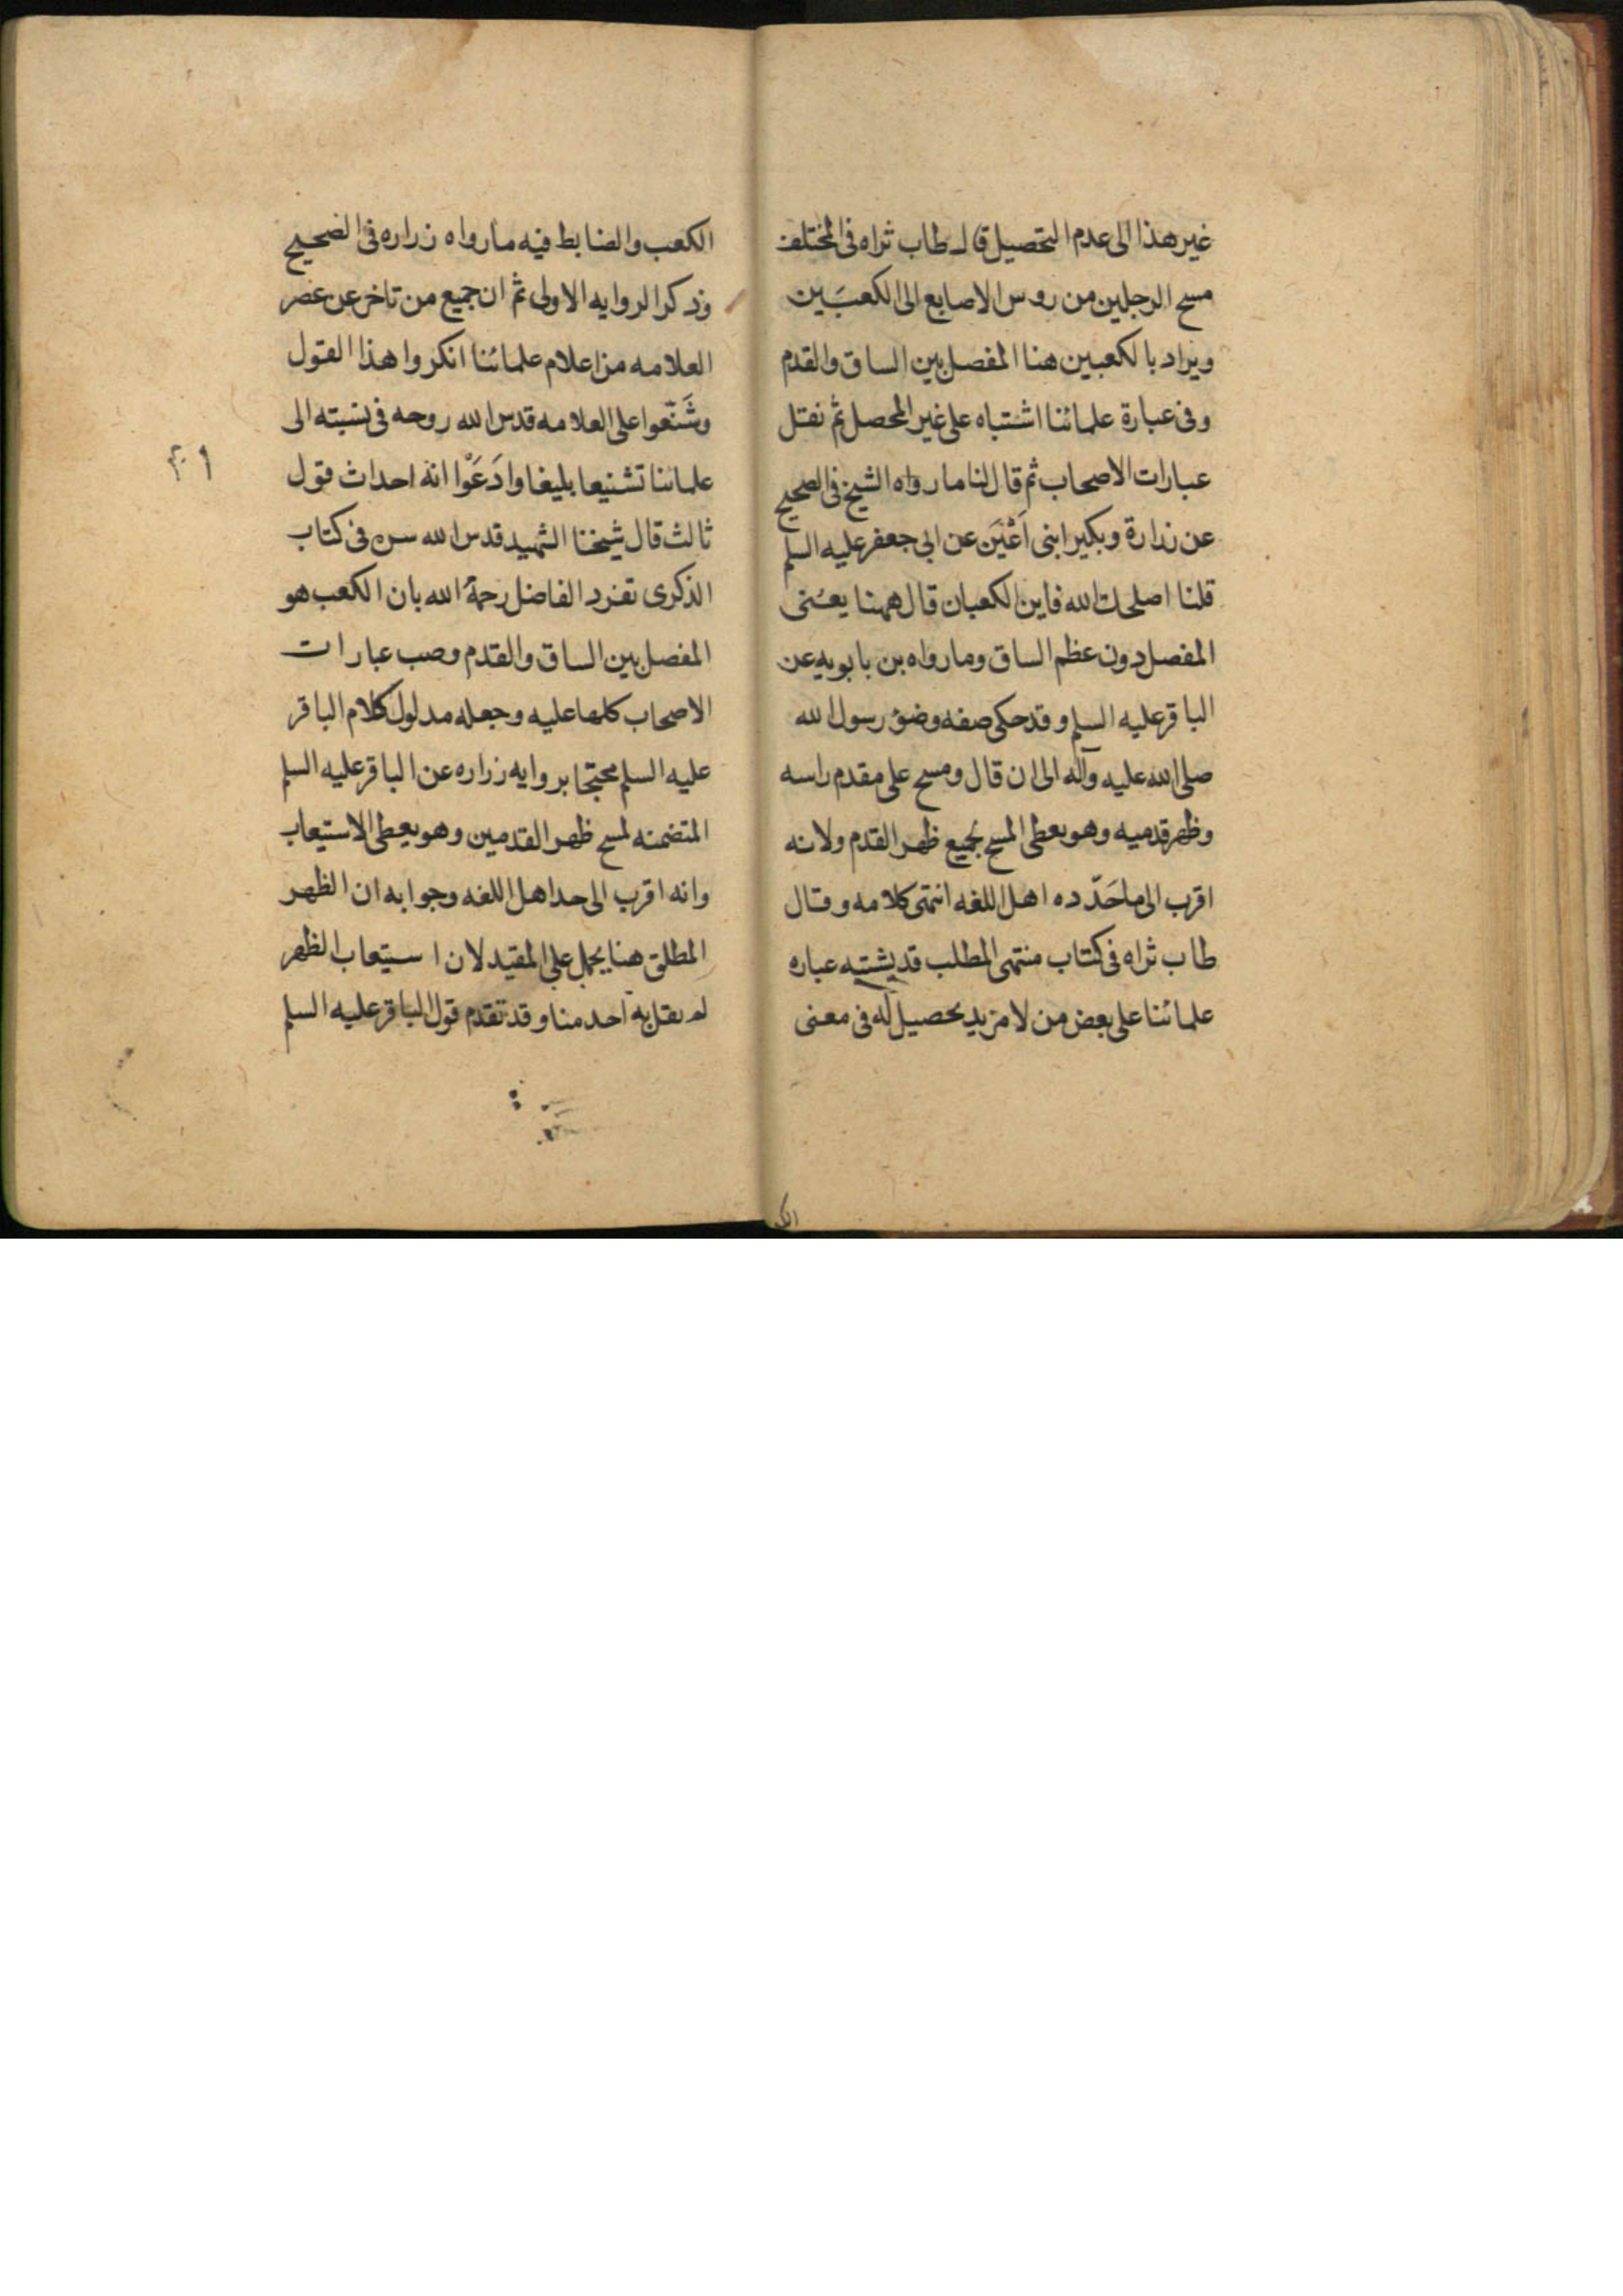 غير هذا الى عدم التحصيل قال طاب ثراه فى المختلف
مسح الرجلين من روس الاصابع الى الكعبَين
ويراد بالكعبين هنا المفصل بين الساق والقدم
وفى عبارة علمائنا اشتباه على غير المحصل ثم نقل
عبارات الاصحاب ثم قال لنا ما رواه الشيخ فى الصحيح
عن زرارة وبكير ابنى اَعْيَن عن ابى جعفر عليه السلم
قلنا اصلحك الله فاين الكعبان قال ههنا يعنى
المفصل دون عظم الساق وما رواه بن بابويه عن
الباقر عليه السلم وقد حكى صفه وضؤ رسول الله
صلى الله عليه وآله الى ان قال ومسح على مقدم راسه
وظهر قدميه وهو يعطى المسح بجميع ظهر القدم ولانه
اقرب الى ما حَدّده اهل اللغه انتهى كلامه وقال
طاب ثراه فى كتاب منتهى المطلب قد يشتبه عباره
علمائنا على بعض من لا مزيد تحصيل له فى معنى
الكعب والضابط فيه ما رواه زراره فى الصحيح
وذكر الروايه الاولى ثم ان جميع من تاخر عن عصر
العلامه من اعلام علمائنا انكروا هذا القول
وشَنّعوا على العلامه قدس الله روحه فى نسبته الى
علمائنا تشنيعا بليغا وادَعَوْا انه احداث قول
ثالث قال شيخنا الشهيد قدس الله سره فى كتاب
الذكرى تفرد الفاضل رحمة الله بان الكعب هو
المفصل بين الساق والقدم وصب عبارات
الاصحاب كلها عليه وجعله مدلول كلام الباقر
عليه السلم محتجا بروايه زراره عن الباقر عليه السلم
المتضمنه لمسح ظهر القدمين وهو يعطى الاستيعاب
وانه اقرب الى حد اهل اللغه وجوابه ان الظهر
المطلق هنا يحمل على المقيد لان استيعاب الظهر
لم يقل به احد منا وقد تقدم قول الباقر عليه السلم